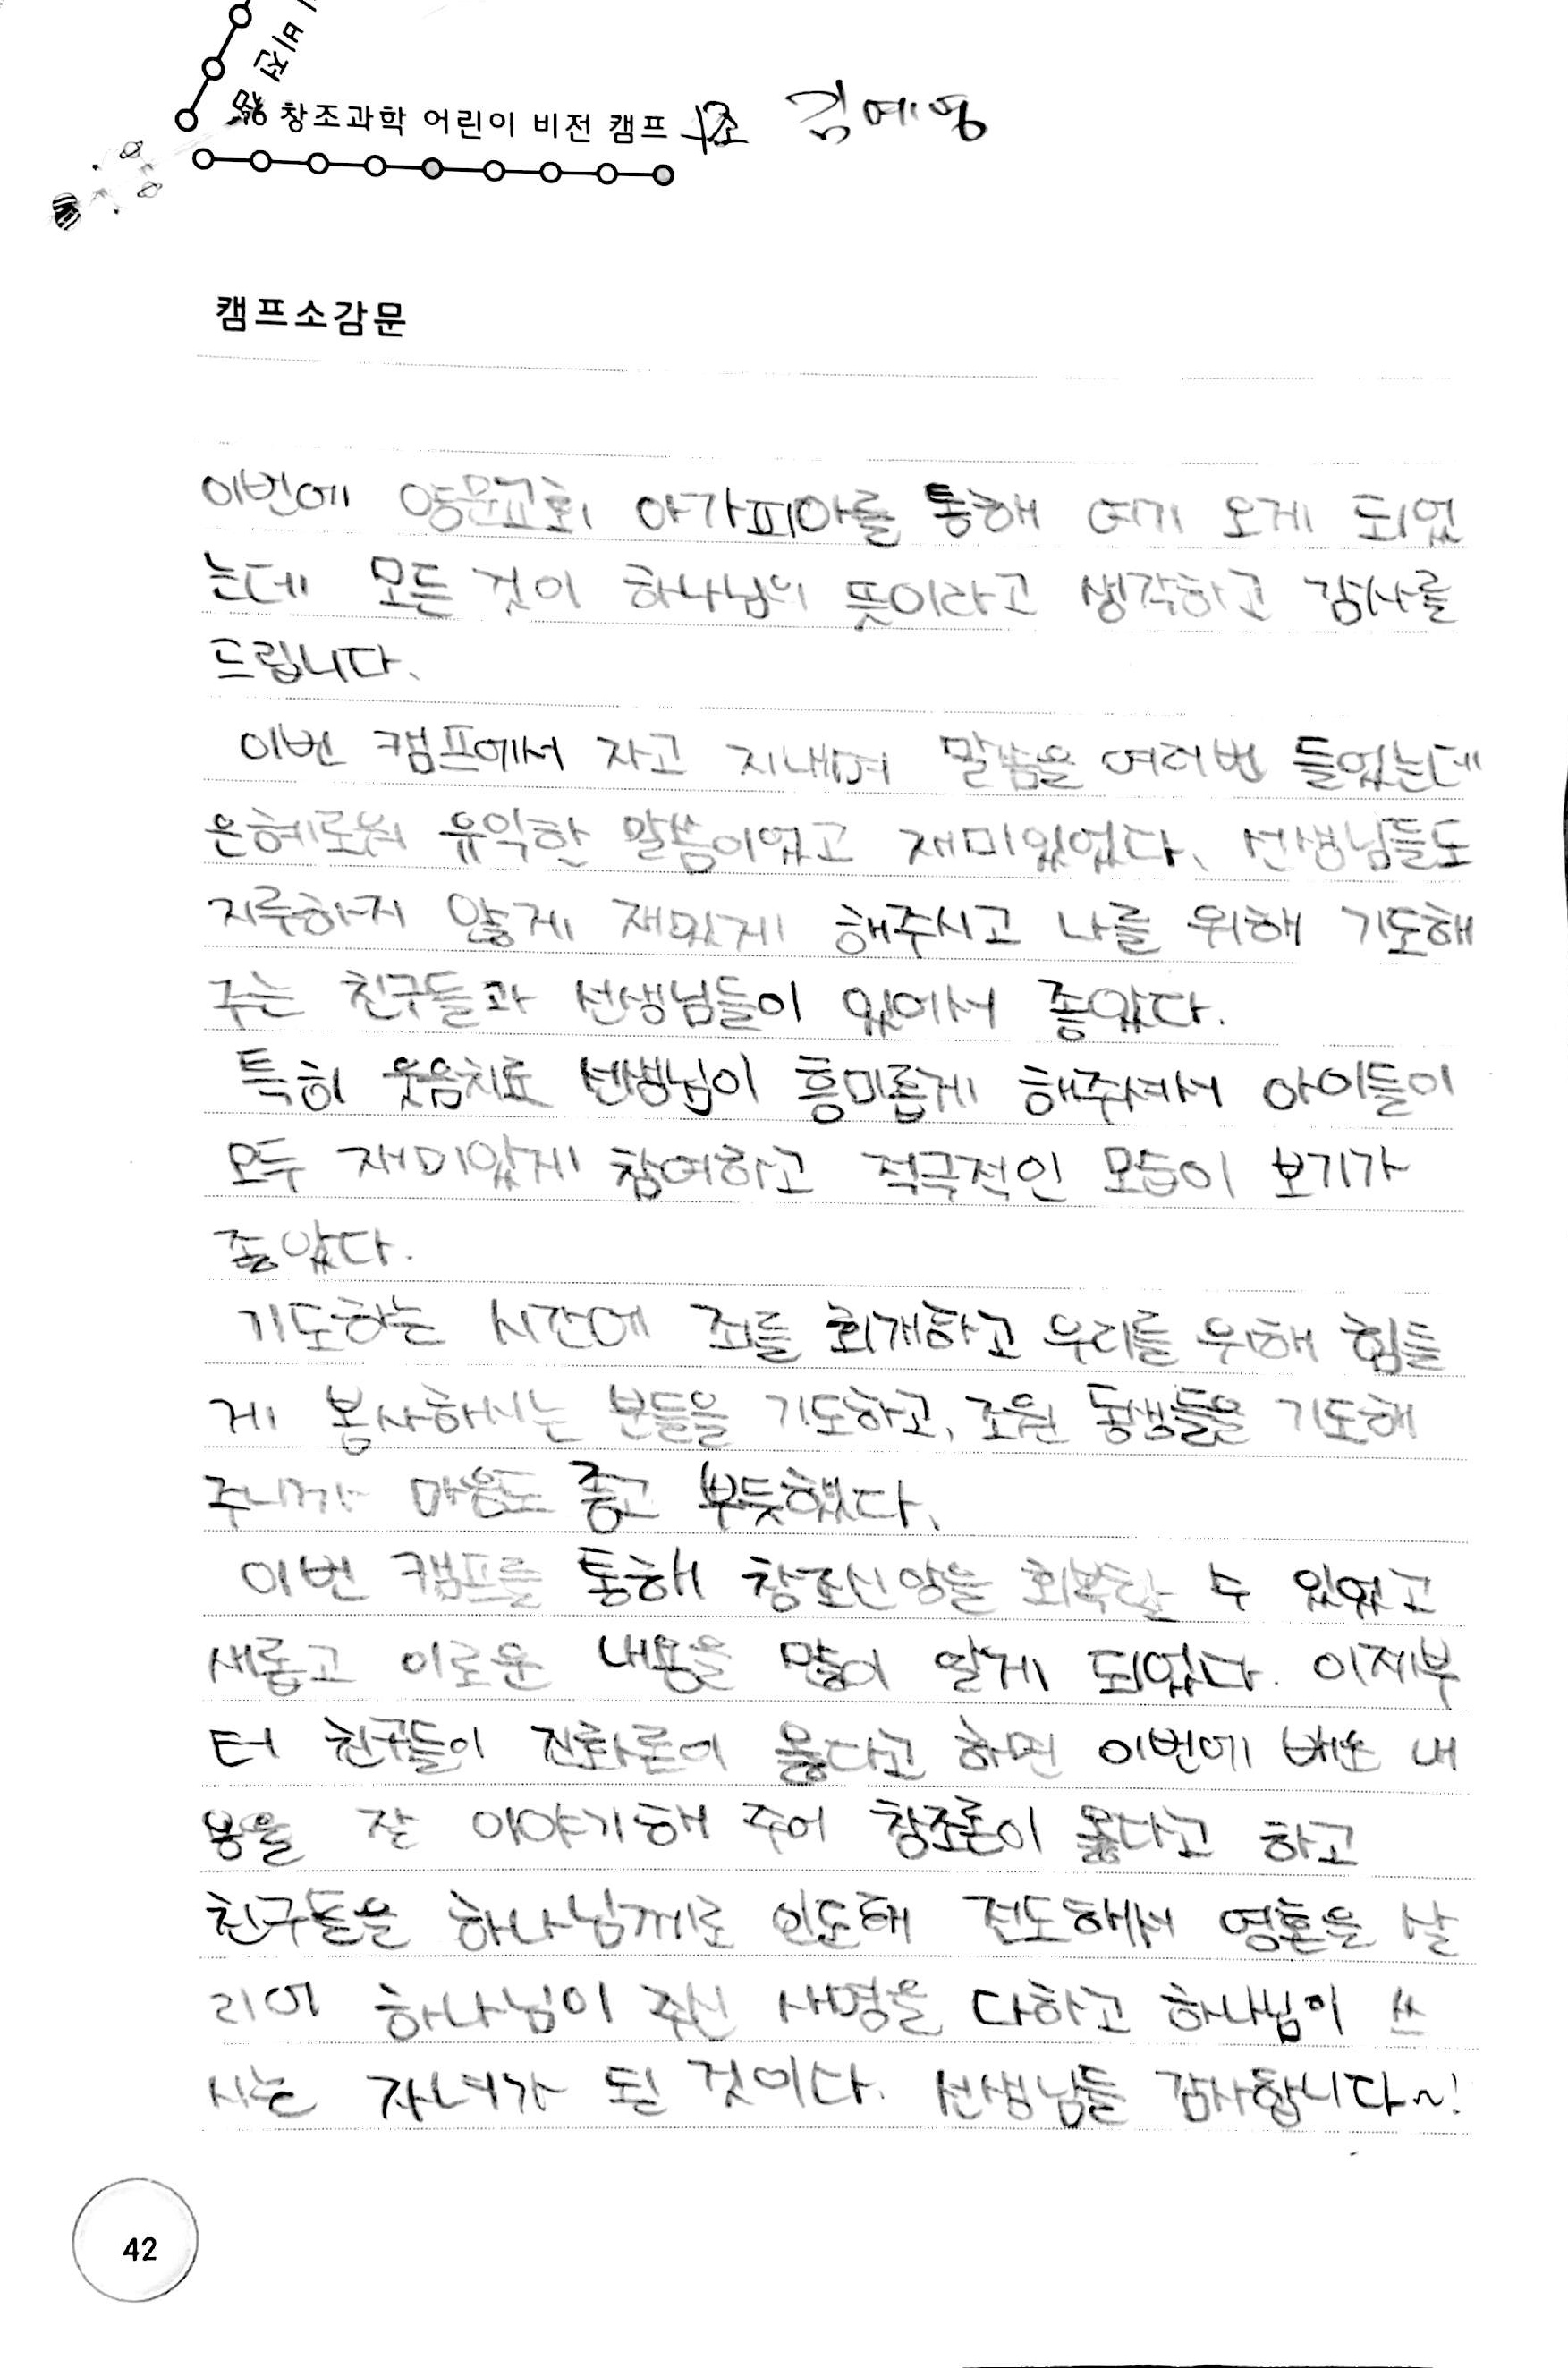 비전
창조과학 어린이 비전 캠프 4조 김예영
캠프소감문
이번에 영문교회 아가피아를 통해 여기 오게 되었
는데 모든 것이 하나님의 뜻이라고 생각하고 감사를
드립니다.
이번 캠프에서 자고 지내며 말씀을 여러번 들었는데
은혜로워 유익한 말씀이었고 재미있었다. 선생님들도
지루하지 않게 재밌게 해주시고 나를 위해 기도해
주는 친구들과 선생님들이 있어서 좋았다.
특히 웃음치료 선생님이 흥미롭게 해주셔서 아이들이
모두 재미있게 참여하고 적극적인 모습이 보기가
좋았다.
기도하는 시간에 죄를 회개하고 우리를 위해 힘들
게 봉사하시는 분들을 기도하고, 조원 동생들을 기도해
주니까 마음도 좋고 뿌듯했다.
이번 캠프를 통해 창조신앙을 회복할 수 있었고
새롭고 이로운 내용을 많이 알게 되었다. 이제부
터 친구들이 진화론이 옳다고 하면 이번에 배운 내
용을 잘 이야기해 주어 창조론이 옳다고 하고
친구들을 하나님께로 인도해 전도해서 영혼을 살
리어 하나님이 주신 사명을 다하고 하나님이 쓰
시는 자녀가 될 것이다. 선생님들 감사합니다~!
42